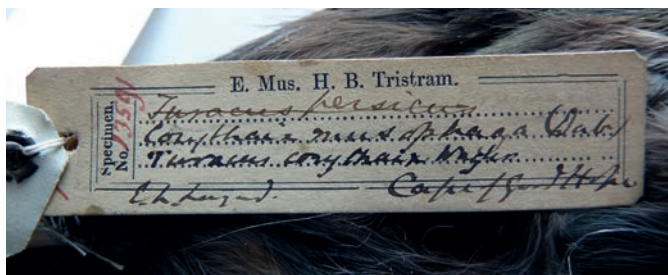 E. Mus. H. B. Tristram.
Specimen.
No.
Turacus persicus
Corythaix musophaga (Dub.)
Turacus corythaix Wagler
E. L. Layard.
Cape of Good Hope